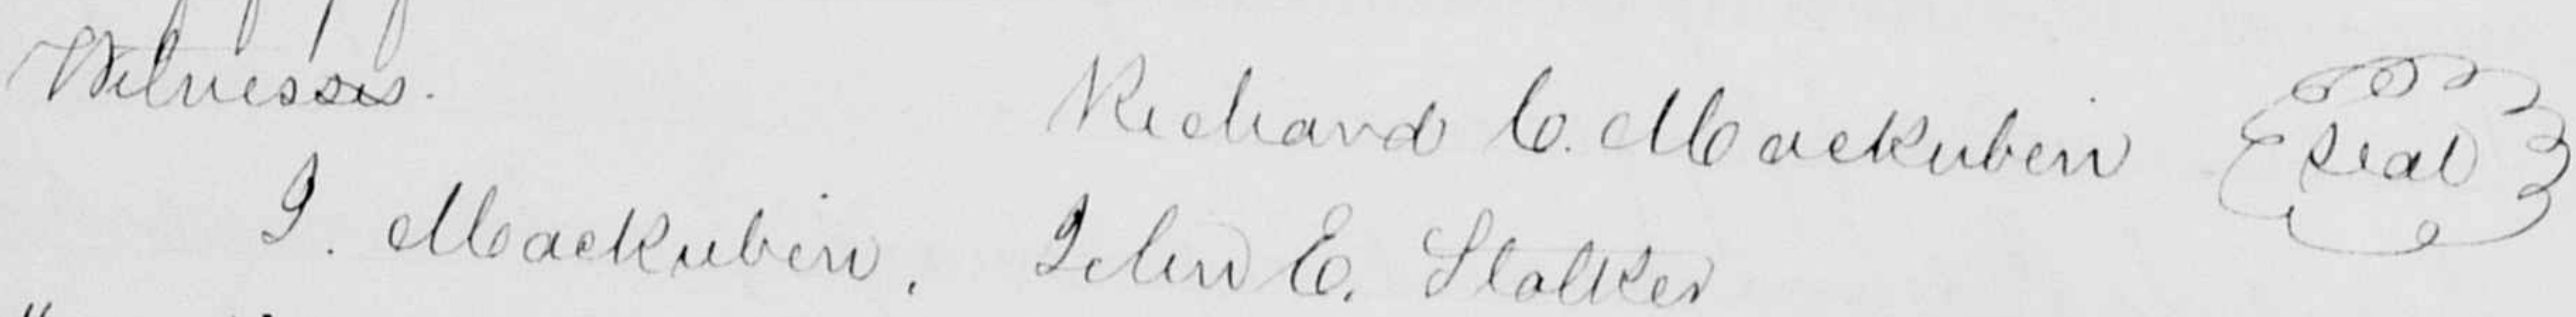 Witnesses.
Richard C. Mackubin Seal
J. Mackubin, John E. Stalker